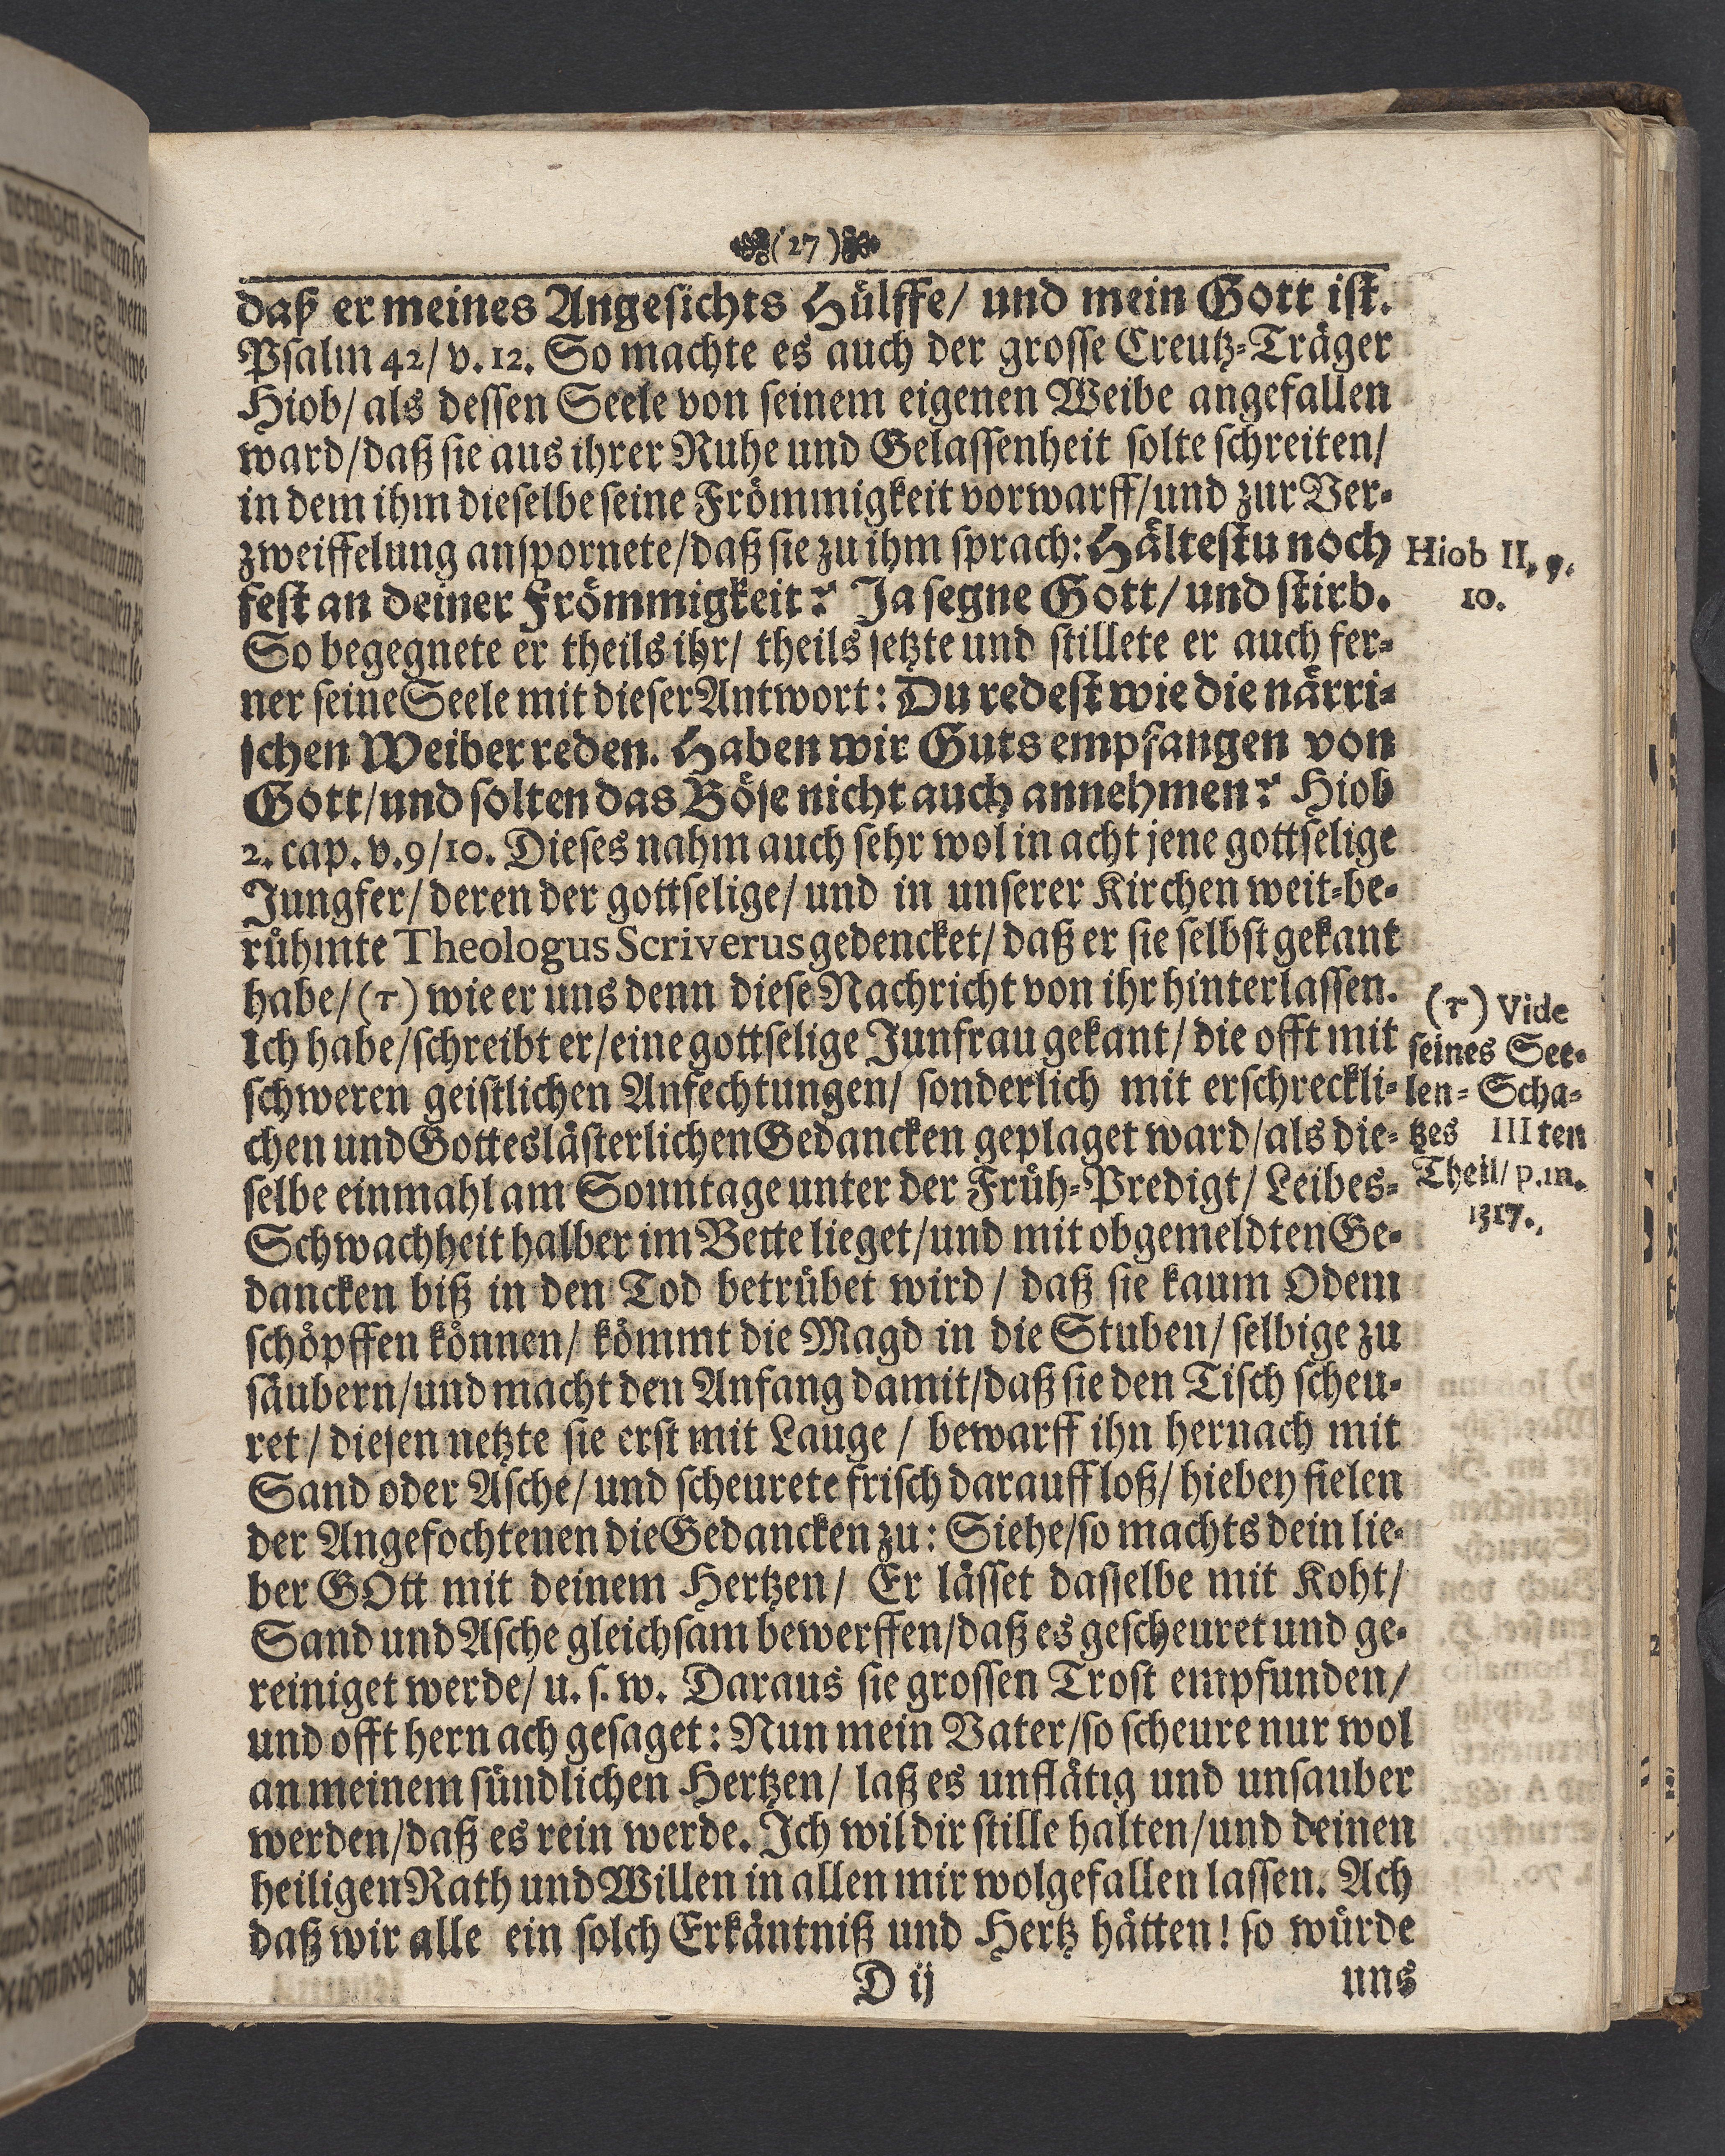 (27)
daß er meines Angesichts Hülffe/ und mein Gott ist.
Psalm 42/ v. 12. So machte es auch der grosse Creutz-Träger
Hiob/ als dessen Seele von seinem eigenen Weibe angefallen
ward/ daß sie aus ihrer Ruhe und Gelassenheit solte schreiten/
in dem ihm dieselbe seine Frömmigkeit vorwarff/ und zur Ver-
zweiffelung anspornete/ daß sie zu ihm sprach: Hältestu noch
fest an deiner Frömmigkeit? Ja segne Gott/ und stirb.
So begegnete er theils ihr/ theils setzte und stillete er auch fer-
ner seine Seele mit dieser Antwort: Du redest wie die närri-
schen Weiber reden. Haben wir Guts empfangen von
Gott/ und solten das Böse nicht auch annehmen? Hiob
2. cap. v. 9/ 10. Dieses nahm auch sehr wol in acht jene gottselige
Jungfer/ deren der gottselige/ und in unserer Kirchen weit-be-
rühmte Theologus Scriverus gedencket/ daß er sie selbst gekant
habe/ (τ) wie er uns denn diese Nachricht von ihr hinterlassen.
Ich habe/ schreibt er/ eine gottselige Junfrau gekant/ die offt mit
schweren geistlichen Anfechtungen/ sonderlich mit erschreckli-
chen und Gotteslästerlichen Gedancken geplaget ward/ als die-
selbe einmahl am Sonntage unter der Früh-Predigt/ Leibes-
Schwachheit halber im Bette lieget/ und mit obgemeldten Ge-
dancken biß in den Tod betrübet wird/ daß sie kaum Odem
schöpffen können/ kömmt die Magd in die Stuben/ selbige zu
säubern/ und macht den Anfang damit/ daß sie den Tisch scheu-
ret/ diesen netzte sie erst mit Lauge/ bewarff ihn hernach mit
Sand oder Asche/ und scheurete frisch darauff loß/ hiebey fielen
der Angefochtenen die Gedancken zu: Siehe/ so machts dein lie-
ber GOtt mit deinem Hertzen/ Er lässet dasselbe mit Koht/
Sand und Asche gleichsam bewerffen/ daß es gescheuret und ge-
reiniget werde/ u. s. w. Daraus sie grossen Trost empfunden/
und offt hernach gesaget: Nun mein Vater/ so scheure nur wol
an meinem sündlichen Hertzen/ laß es unflätig und unsauber
werden/ daß es rein werde. Ich wil dir stille halten/ und deinen
heiligen Rath und Willen in allen mir wolgefallen lassen. Ach
daß wir alle ein solch Erkäntniß und Hertz hätten! so würde
D ij
uns
Hiob II, 9.
10.
(τ) Vide
seines See-
len-Scha-
tzes IIIten
Theil/ p. m.
1317.